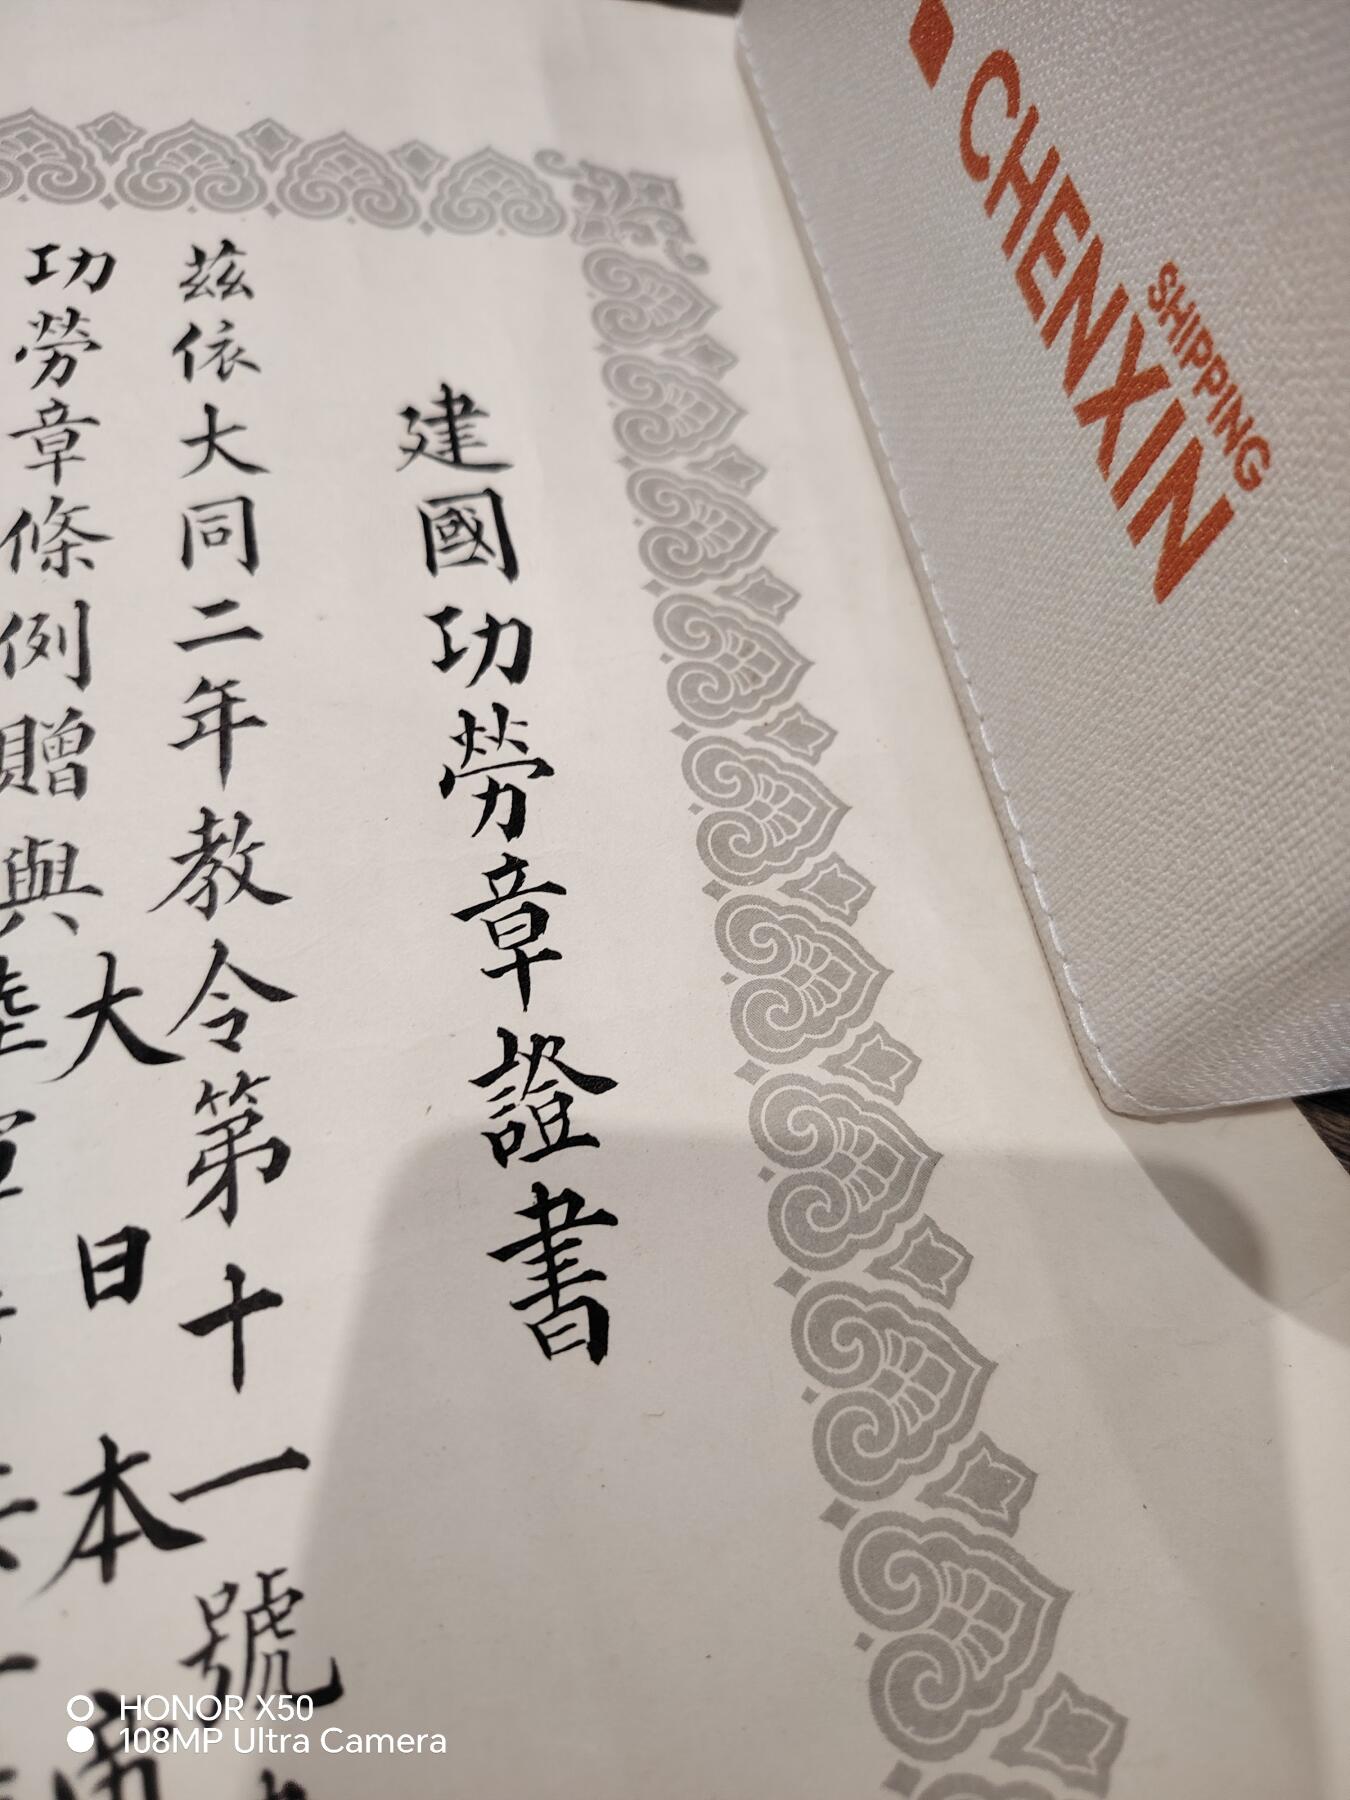 CHENXIN
SHIPPING
建國功勞章證書
茲依大同二年教令第十一號
功勞章條例贈與
大日本
陸軍
HONOR X50
108MP Ultra Camera